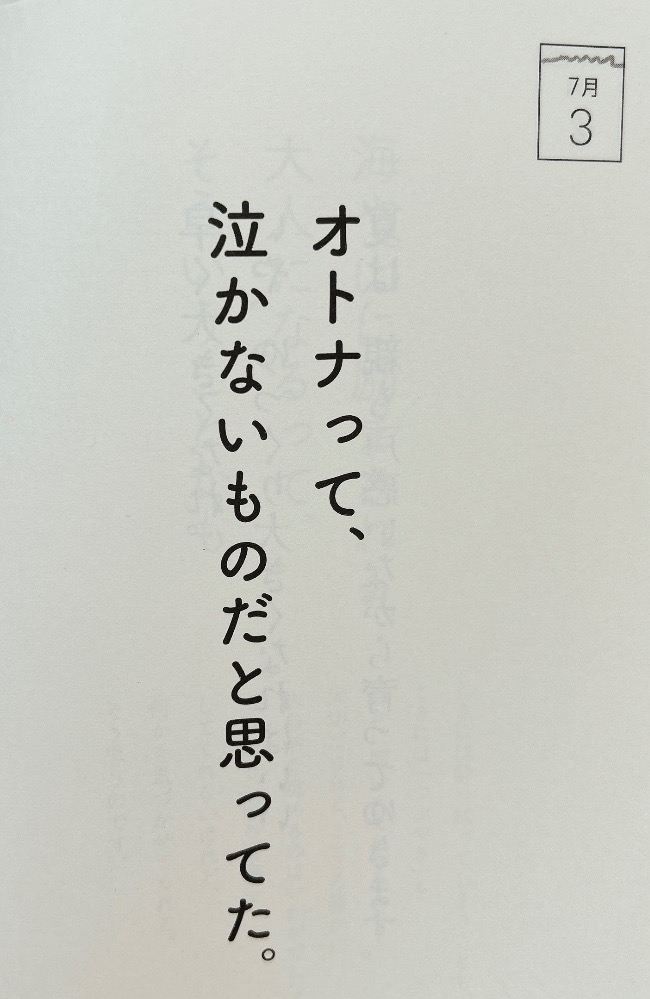 7月
3
オトナって、
泣かないものだと思ってた。